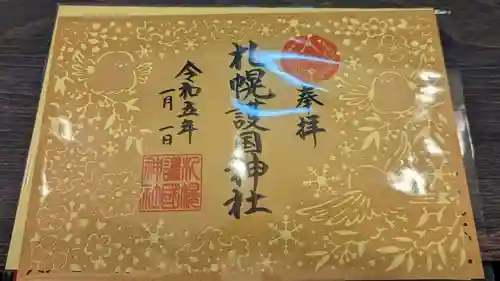 奉拝
札幌護国神社
令和五年
一月一日
札幌
護國
神社